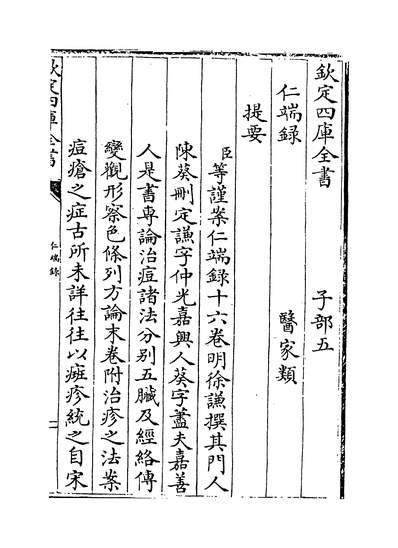 欽定四庫全書　　　　子部五
仁端錄　　　　　　　醫家類
提要
臣等謹案仁端錄十六卷明徐謙撰其門人
陳葵刪定謙字仲光嘉興人葵字藎夫嘉善
人是書專論治痘諸法分别五臟及經絡傳
變觀形察色條列方論末卷附治疹之法案
痘瘡之症古所未詳往往以癍疹統之自宋
欽定四庫全書
仁端錄
一